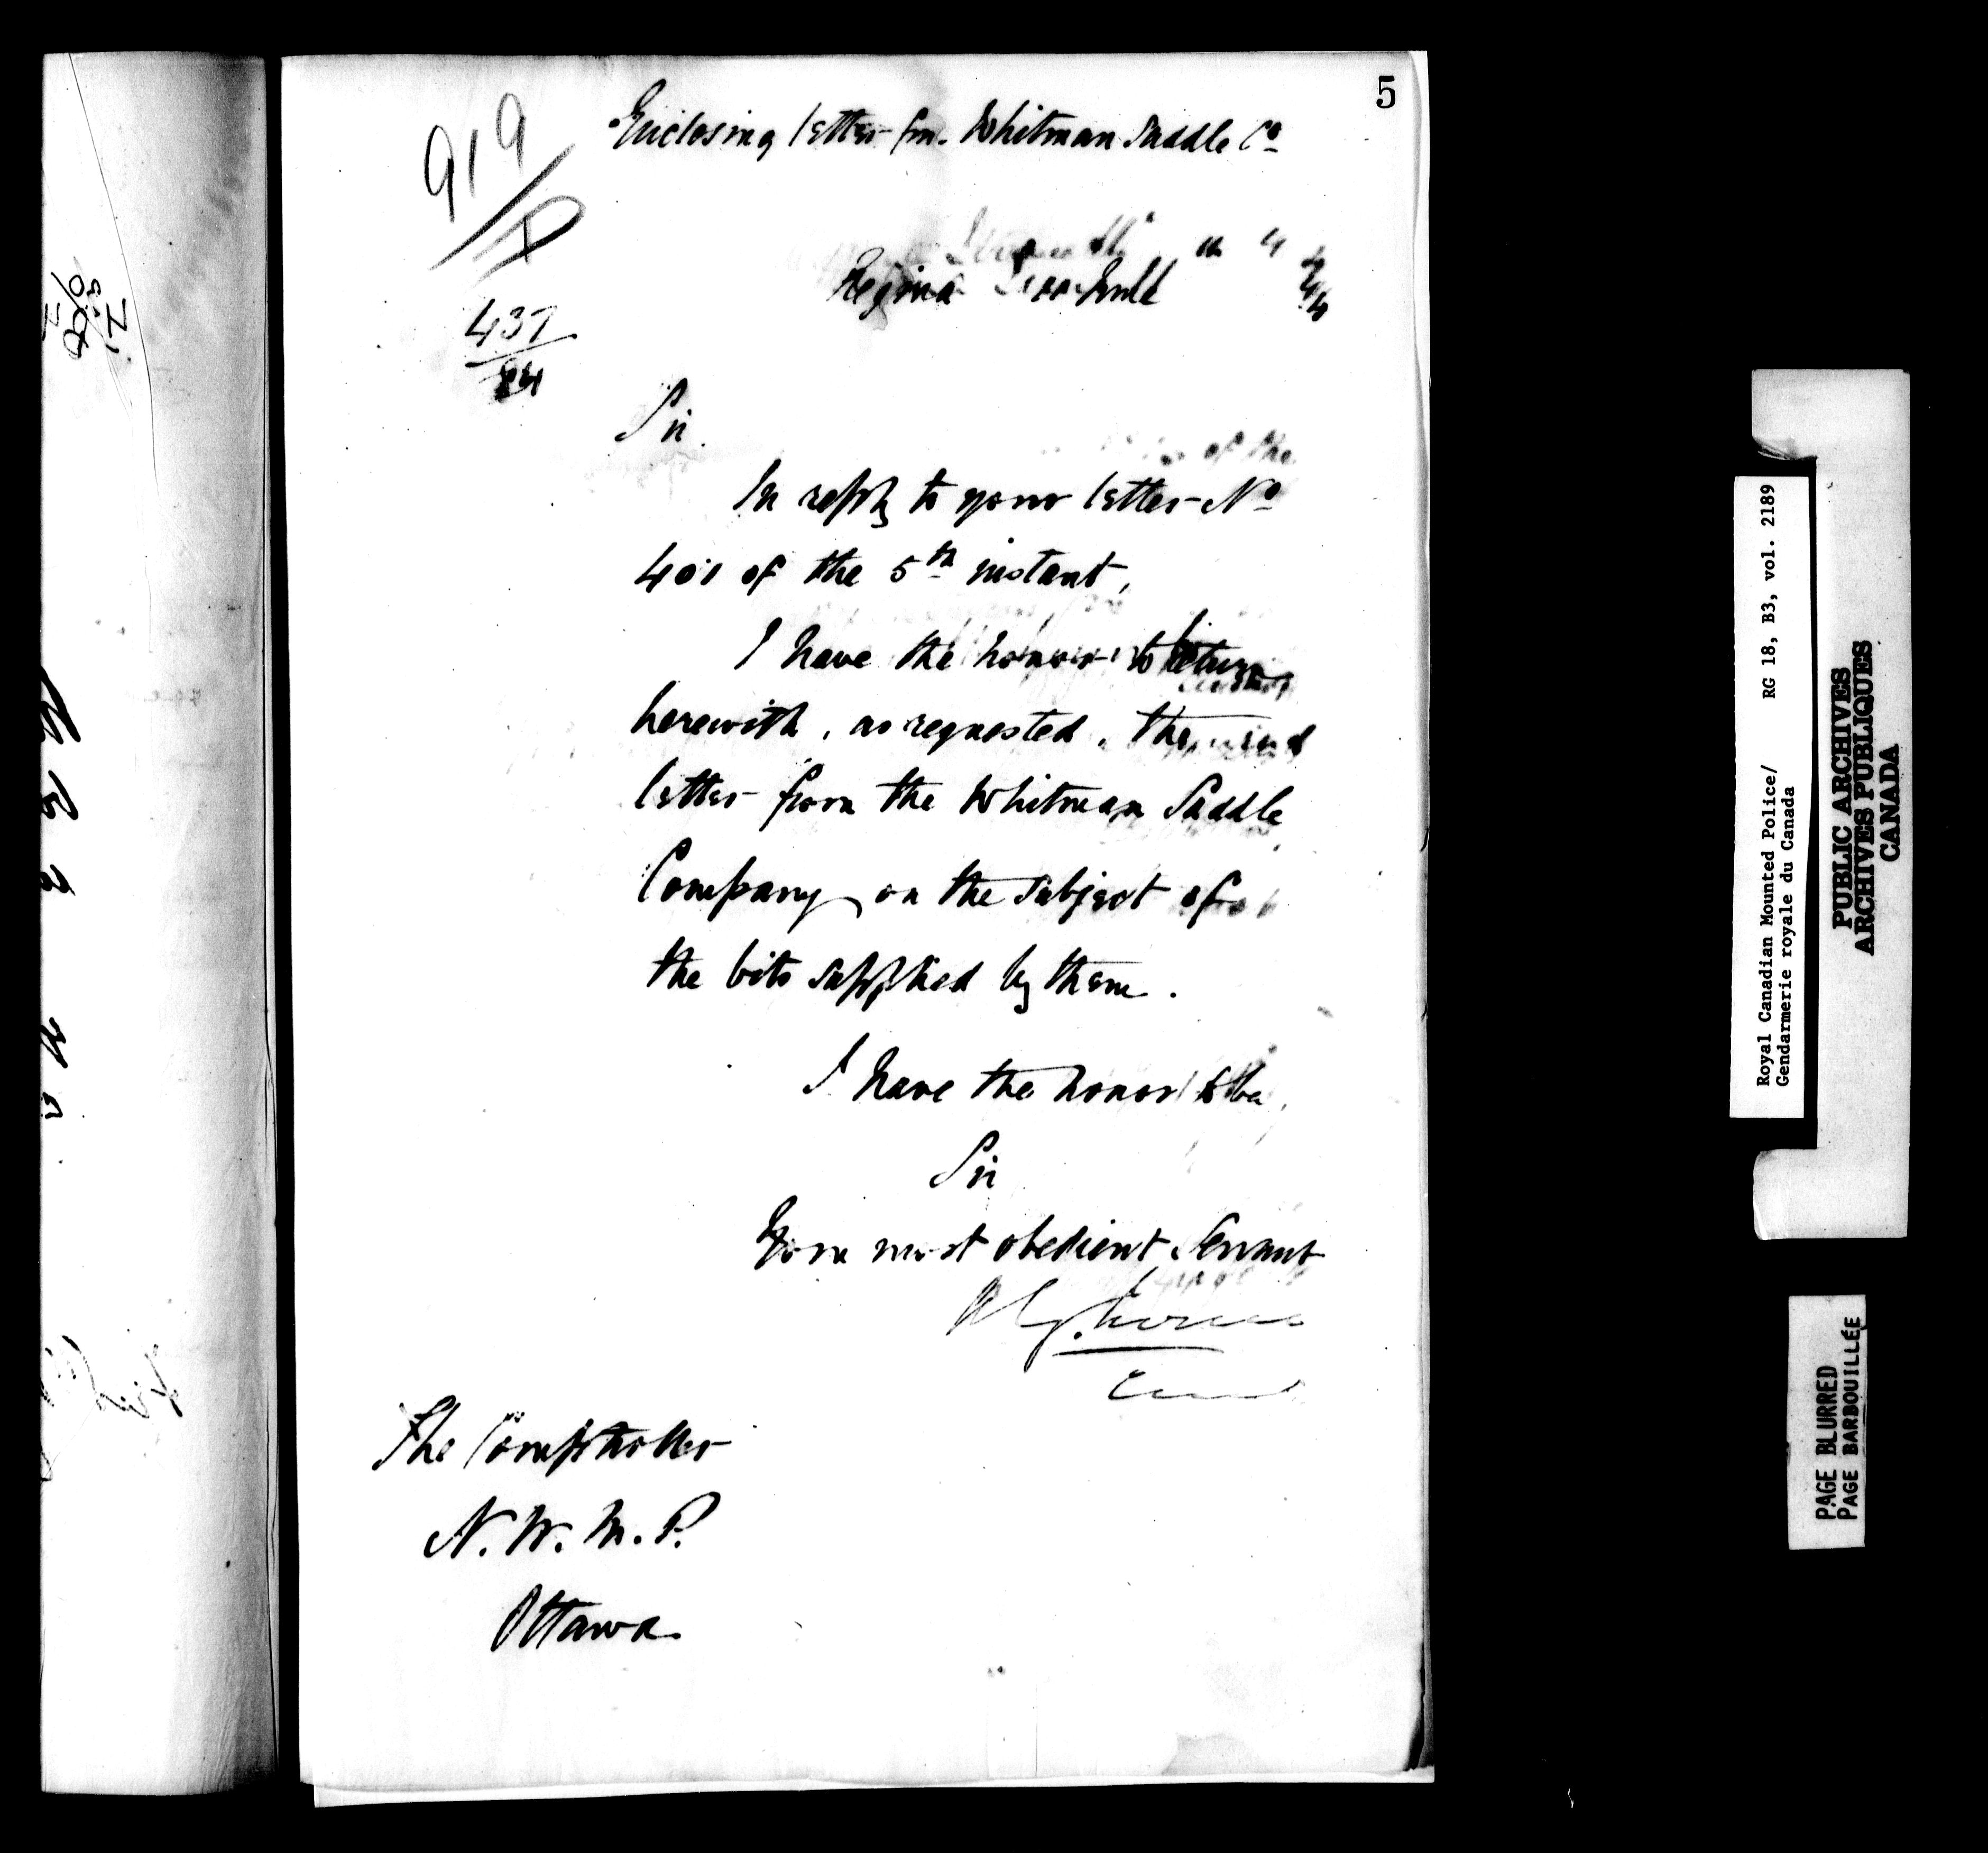 5
Enclosing letter fm. Whitman Saddle Co
919
D
Regina
437
84
Sir
In reply to your letter No
401 of the 5th instant,
I have the honor to return
herewith, as requested, the
letter from the Whitman Saddle
Company on the subject of
the bits supplied by them.
I have the honor to be,
Sir
Your most obedient Servant
The Comptroller
N. W. M. P.
Ottawa
Royal Canadian Mounted Police/ RG 18, B3, vol. 2189
Gendarmerie royale du Canada
PUBLIC ARCHIVES
ARCHIVES PUBLIQUES
CANADA
PAGE BLURRED
PAGE BARBOUILLÉE